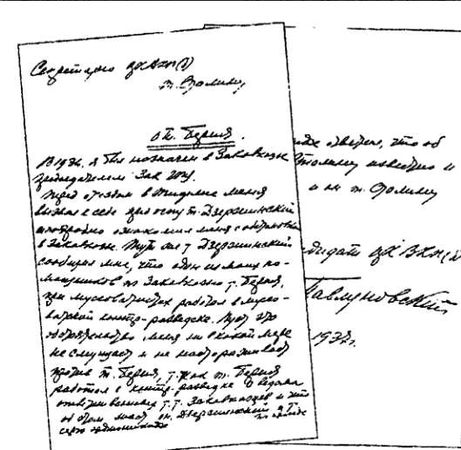 Секретарю ЦК ВКП(б)
т. Сталину
о т. Берия.
В 1926 я был назначен в Закавказье
председателем Зак ГПУ.
Перед отъездом в Тифлис меня
вызвал к себе пред ОГПУ т. Дзержинский
и подробно ознакомил меня с обстановкой
в Закавказье. Тут же т Дзержинский
сообщил мне, что один из моих по-
мощников по Закавказью т. Берия,
при мусаватистах работал в муса-
ватской контр-разведке. Пусть это
обстоятельство меня ни в какой мере
не смущает и не настораживает
против т. Берия, т. как т. Берия
работал в контр-разведке с ведома
ответственных т.т. Закавказцев и что
об этом знает он Дзержинский и т.
Серго Орджоникидзе
что об
Сталину известно и
и он т. Сталину
ЦК ВКП(б)
Павлуновский
1937г.